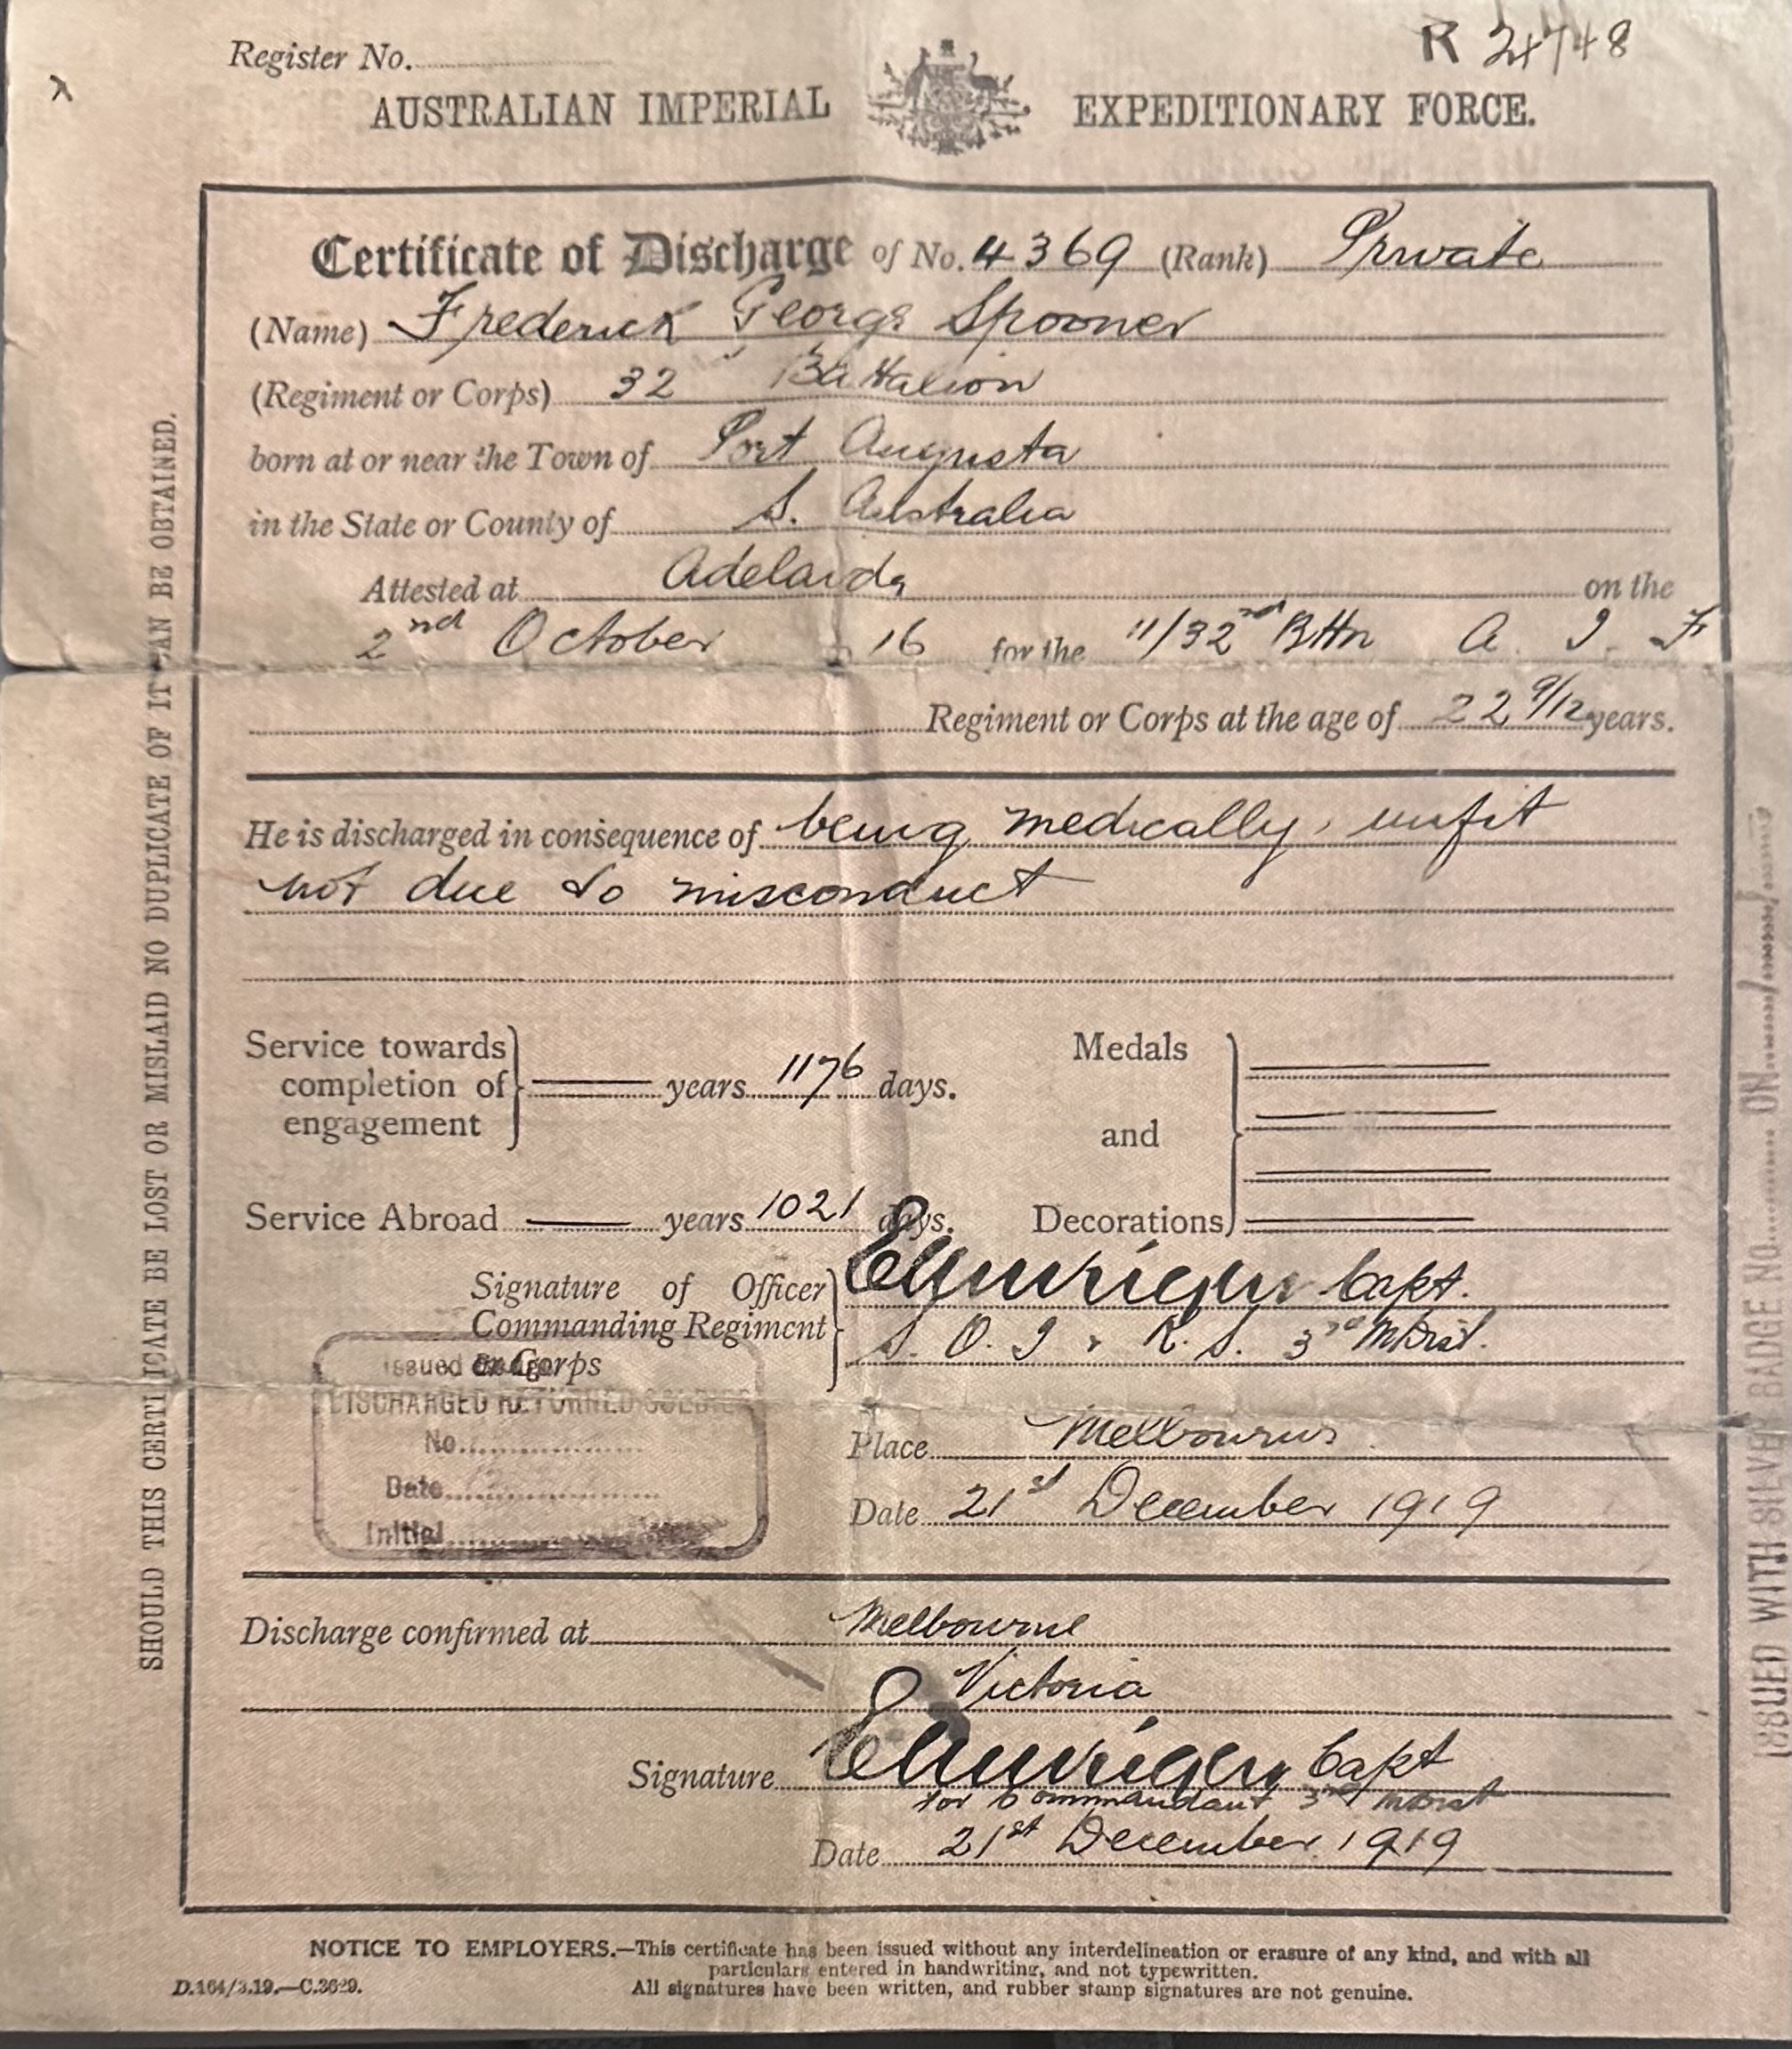 Register No.
R 24748
AUSTRALIAN IMPERIAL EXPEDITIONARY FORCE.
Certificate of Discharge of No. 4369 (Rank) Private
(Name) Frederick George Spooner
(Regiment or Corps) 32 Battalion
born at or near the Town of Port Augusta
in the State or County of S. Australia
Attested at Adelaide on the
2nd October 16 for the 11/32nd Bttn A. I. F
Regiment or Corps at the age of 22 9/12 years.
He is discharged in consequence of being medically unfit
not due to misconduct
Service towards
completion of years 1176 days.
engagement
Medals
and
Decorations
Service Abroad years 1021 days.
Signature of Officer Capt.
Commanding Regiment S. O. I & R. S. 3rd M. Dist.
or Corps
Issued Badge
DISCHARGED RETURNED SOLDIER
No.
Date
Initial
Place Melbourne
Date 21st December 1919
Discharge confirmed at Melbourne
Victoria
Signature Capt
for Commandant 3rd M Dist
Date 21st December 1919
NOTICE TO EMPLOYERS.—This certificate has been issued without any interdelineation or erasure of any kind, and with all
particulars entered in handwriting, and not typewritten.
All signatures have been written, and rubber stamp signatures are not genuine.
D.164/3.19.—C.3629.
SHOULD THIS CERTIFICATE BE LOST OR MISLAID NO DUPLICATE OF IT CAN BE OBTAINED.
ISSUED WITH SILVER BADGE No. ON / /